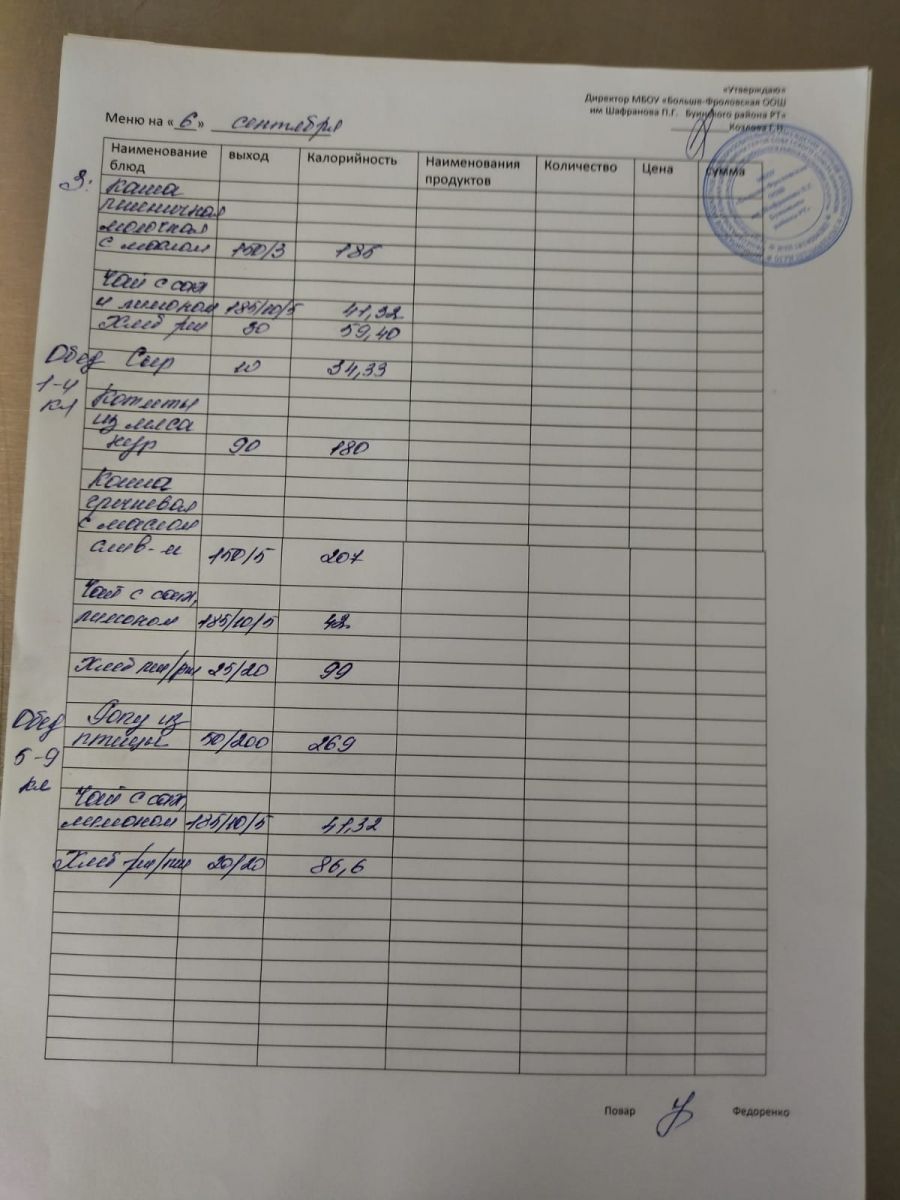 «Утверждаю»
Директор МБОУ «Больше-Фроловская ООШ
им Шафранова П.Г. Буинского района РТ»
Козлова Г.Н.
Меню на « 6 » сентября
Наименование блюд выход Калорийность Наименования продуктов Количество Цена сумма
З: Каша
пшеничная
молочная
с маслом 150/3 185
Чай с сах
и лимоном 185/10/5 41,32
Хлеб рж 30 59,40
Обед Сыр 10 34,33
1-4
кл Котлеты
из мяса
кур 90 180
Каша
гречневая
с маслом
слив-м 150/5 207
Чай с сах,
лимоном 185/10/5 42
Хлеб пш/рж 25/20 99
Обед Рагу из
птицы 50/200 269
5-9
кл Чай с сах,
лимоном 185/10/5 41,32
Хлеб рж/пш 20/20 86,6
Повар Федоренко